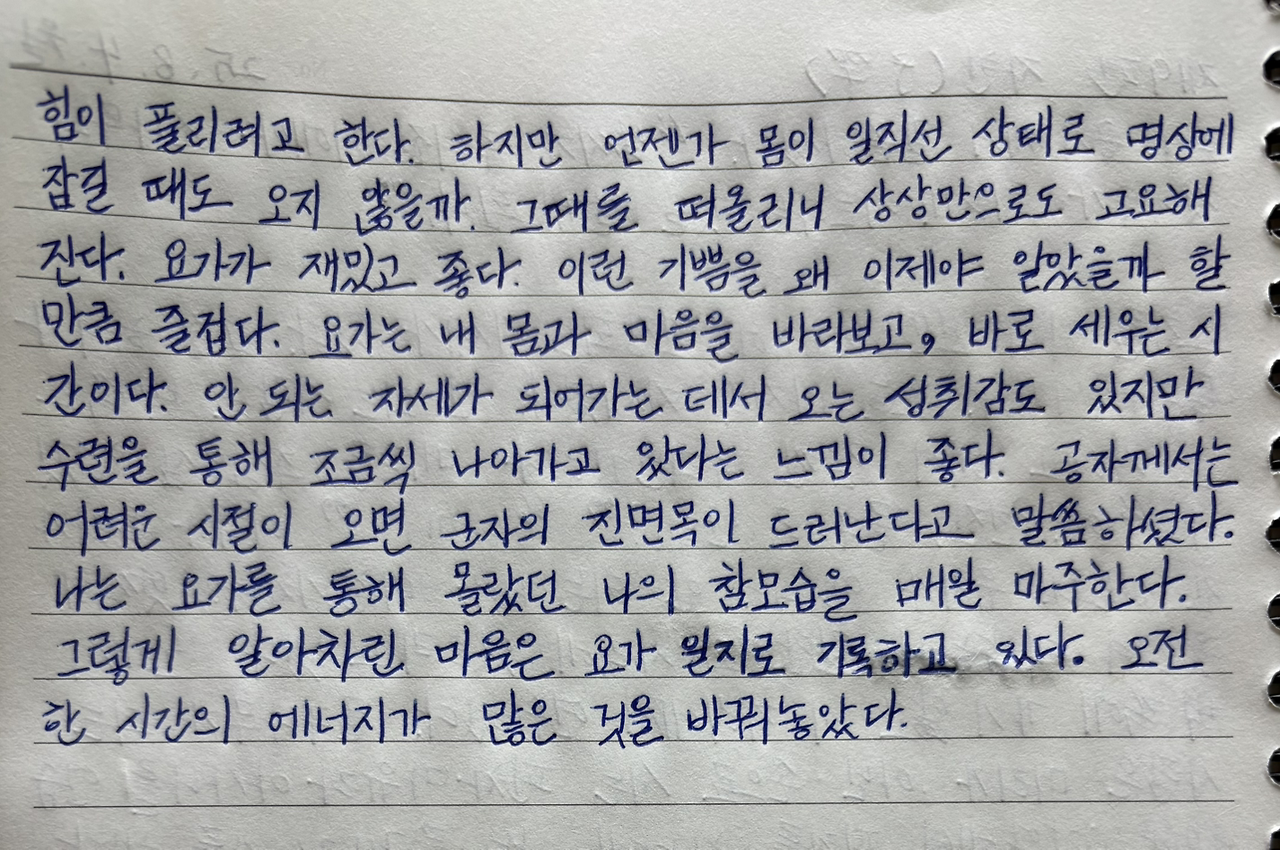 힘이 풀리려고 한다. 하지만 언젠가 몸이 일직선 상태로 명상에
잠길 때도 오지 않을까. 그때를 떠올리니 상상만으로도 고요해
진다. 요가가 재밌고 좋다. 이런 기쁨을 왜 이제야 알았을까 할
만큼 즐겁다. 요가는 내 몸과 마음을 바라보고, 바로 세우는 시
간이다. 안 되는 자세가 되어가는 데서 오는 성취감도 있지만
수련을 통해 조금씩 나아가고 있다는 느낌이 좋다. 공자께서는
어려운 시절이 오면 군자의 진면목이 드러난다고 말씀하셨다.
나는 요가를 통해 몰랐던 나의 참모습을 매일 마주한다.
그렇게 알아차린 마음은 요가 일지로 기록하고 있다. 오전
한 시간의 에너지가 많은 것을 바꿔놓았다.